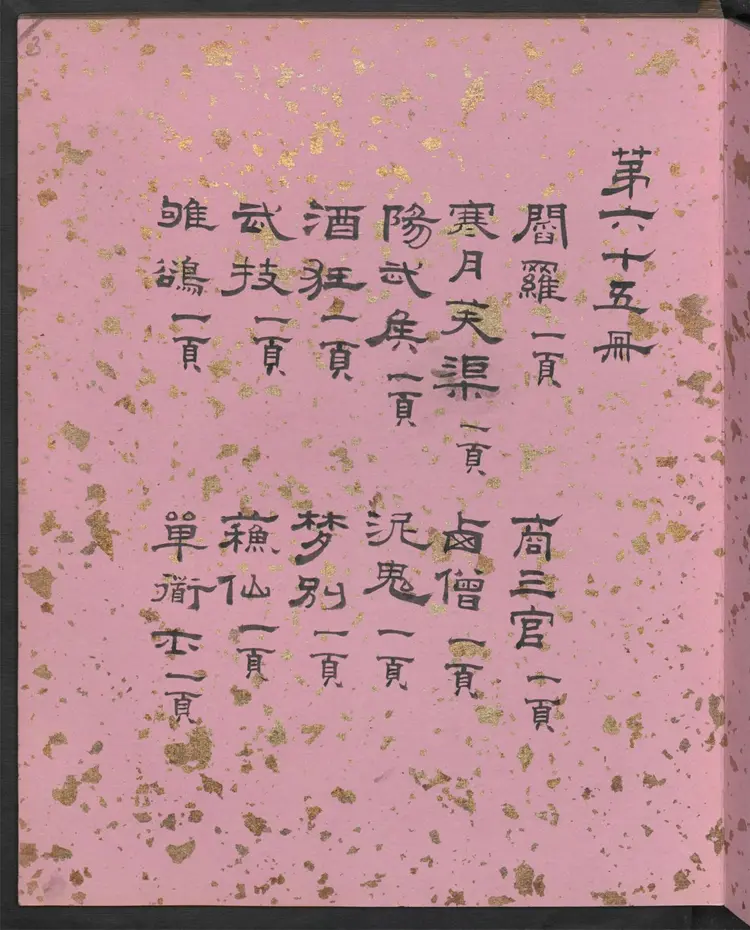 3
第六十五冊
閻羅一頁
寒月芙渠一頁
陽武侯一頁
酒狂一頁
武技一頁
雊鵒一頁
商三官一頁
卥僧一頁
泥鬼一頁
梦別一頁
蘓仙一頁
單衟士一頁